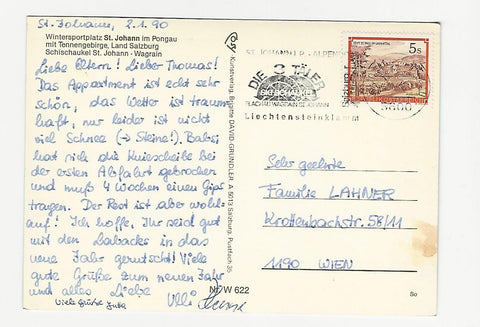 St. Johann, 2.1.90
Wintersportplatz St. Johann im Pongau
mit Tennengebirge, Land Salzburg
Schischaukel St. Johann - Wagrain
Liebe Eltern! Lieber Thomas!
Das Appartment ist echt sehr
schön, das Wetter ist traum-
haft, nur leider ist nicht
viel Schnee (→ Steine!). Babsi
hat sich die Kniescheibe bei
der ersten Abfahrt gebrochen
und muß 4 Wochen einen Gips
tragen. Der Rest ist aber wohl-
auf! Ich hoffe, Ihr seid gut
mit den Labacks in das
neue Jahr gerutscht! Viele
gute Grüße zum neuen Jahr
und alles Liebe Ulli
Viele Grüße Jutta
Kunstverlag, Brigitte DAVID-GRÜNDLER A 5013 Salzburg, Postfach 35
Nr. W 622
ST. JOHANN I. P. - ALPEN
DIE 3 TÄLER
FLACHAU WAGRAIN ST. JOHANN
Liechtensteinklamm
5s
5600
Sehr geehrte
Familie LAHNER
Krottenbachstr. 58/11
1190 WIEN
So